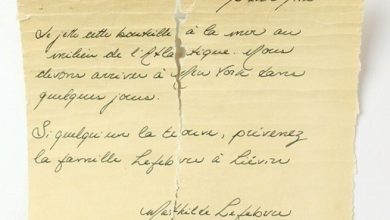 Je jette cette bouteille à la mer au
milieu de l'Atlantique. Nous
devons arriver à New York dans
quelques jours.
Si quelqu'un la trouve, prévenez
la famille Lefebvre à Liévin
Mathilde Lefebvre